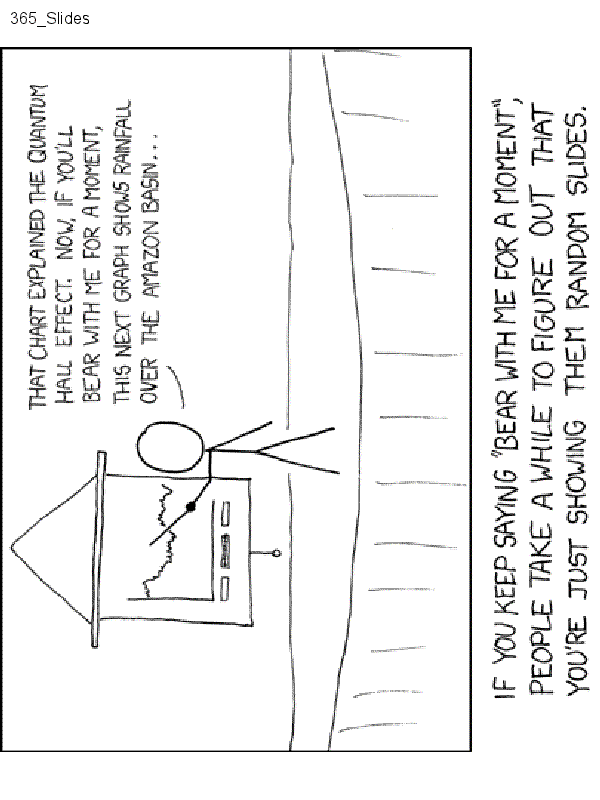 365_Slides
THAT CHART EXPLAINED THE QUANTUM
HALL EFFECT. NOW, IF YOU'LL
BEAR WITH ME FOR A MOMENT,
THIS NEXT GRAPH SHOWS RAINFALL
OVER THE AMAZON BASIN...
IF YOU KEEP SAYING "BEAR WITH ME FOR A MOMENT",
PEOPLE TAKE A WHILE TO FIGURE OUT THAT
YOU'RE JUST SHOWING THEM RANDOM SLIDES.